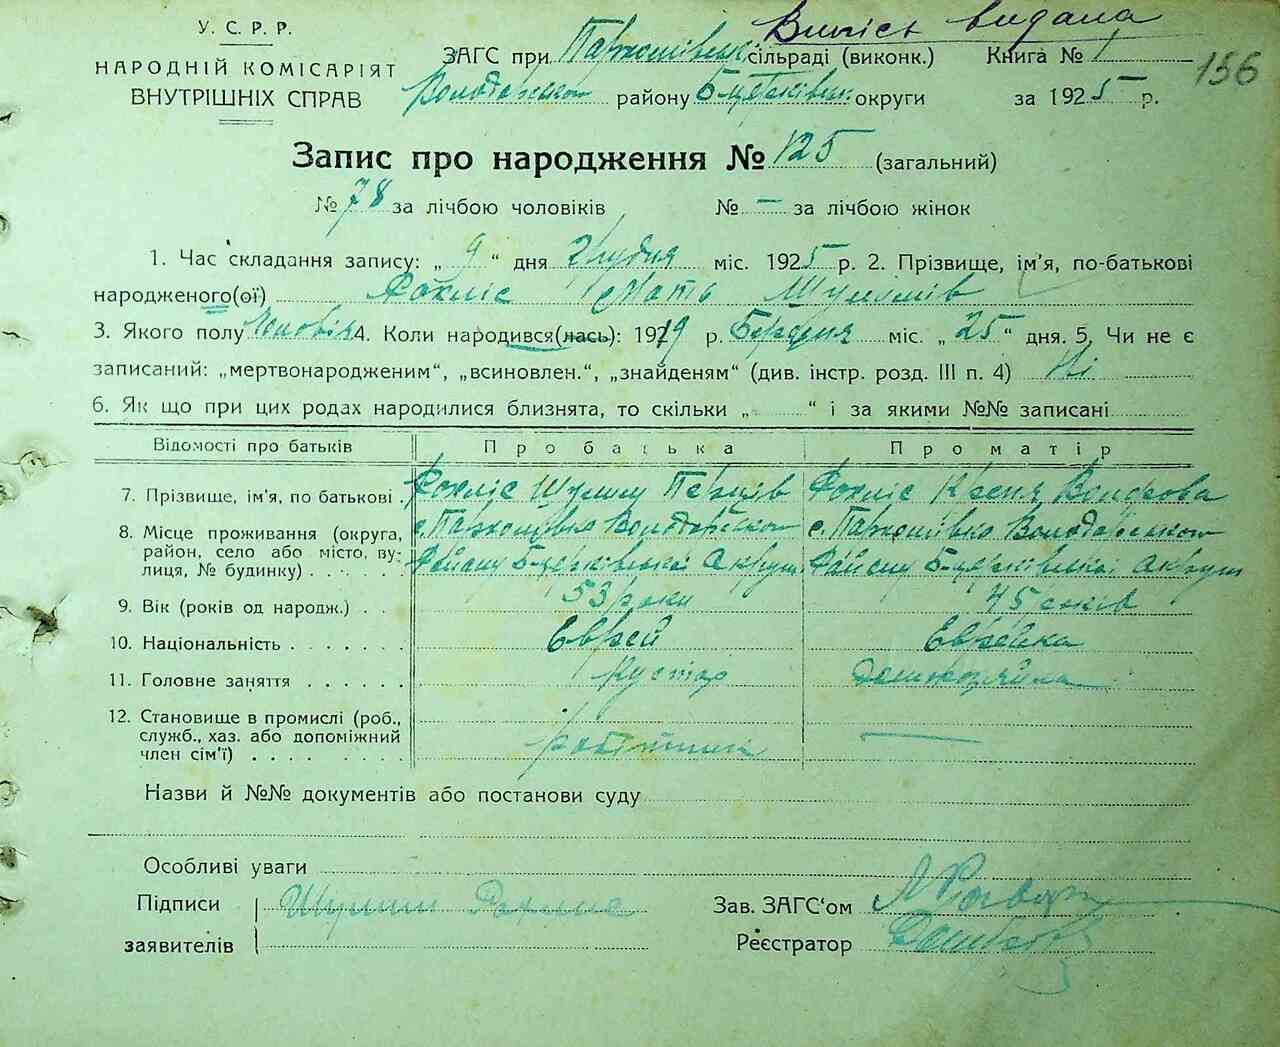 Випись видана
У. С. Р. Р.
НАРОДНІЙ КОМІСАРІЯТ
ВНУТРІШНІХ СПРАВ
ЗАГС при Пархомівськ. сільраді (виконк.) Книга № 1
156
Володарськом району Б-церківськ округи за 1925 р.
Запис про народження № 125 (загальний)
№ 78 за лічбою чоловіків № — за лічбою жінок
1. Час складання запису: „ 9 “ дня Грудня міс. 1925 р. 2. Прізвище, ім'я, по-батькові
народженого(ої) Фохліс Шулимів
3. Якого полу 4. Коли народився(лась): 1919 р. Березня міс. „ 25 “ дня. 5. Чи не є
записаний: „мертвонародженим“, „всиновлен.“, „знайденям“ (див. інстр. розд. III п. 4) Ні
6. Як що при цих родах народилися близнята, то скільки „ “ і за якими №№ записані
Відомості про батьків Про батька Про матір
7. Прізвище, ім'я, по батькові Фохліс Шулим Перців Фохліс Волькова
8. Місце проживання (округа, район, село або місто, вулиця, № будинку) с. Пархомівка Володарськом с. Пархомівка Володарськом
Району Б-церківської Округи Району Б-церківської округи
9. Вік (років од народж.) 53 роки 45 років
10. Національність Еврей Еврейка
11. Головне заняття Кустар Домохозяйка
12. Становище в промислі (роб., служб., хаз. або допоміжний член сім'ї) робітник —
Назви й №№ документів або постанови суду
Особливі уваги
Підписи Шулим Фохлис Зав. ЗАГС‘ом
заявителів Реєстратор